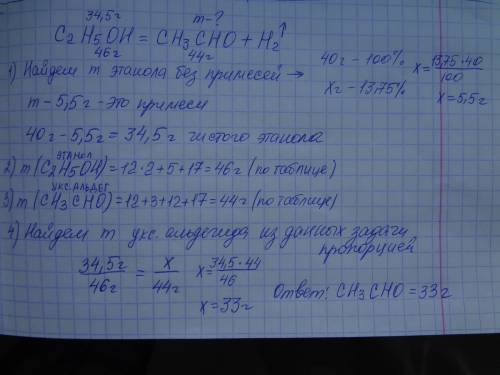 34,5г m-?
C₂H₅OH = CH₃CHO + H₂↑
46г 44г
1) Найдем m этанола без примесей →
40г - 100%
xг - 13,75%
x = 13,75·40/100
x = 5,5г
m - 5,5г - это примеси
40г - 5,5г = 34,5г чистого этанола
этанол
2) m(C₂H₅OH) = 12·2+5+17 = 46г (по таблице)
укс.альдег
3) m(CH₃CHO) = 12+3+12+17 = 44г (по таблице)
4) Найдем m укс. альдегида из данных задачи
пропорцией
34,5г/46г = x/44г x = 34,5·44/46
x = 33г
Ответ: CH₃CHO = 33г